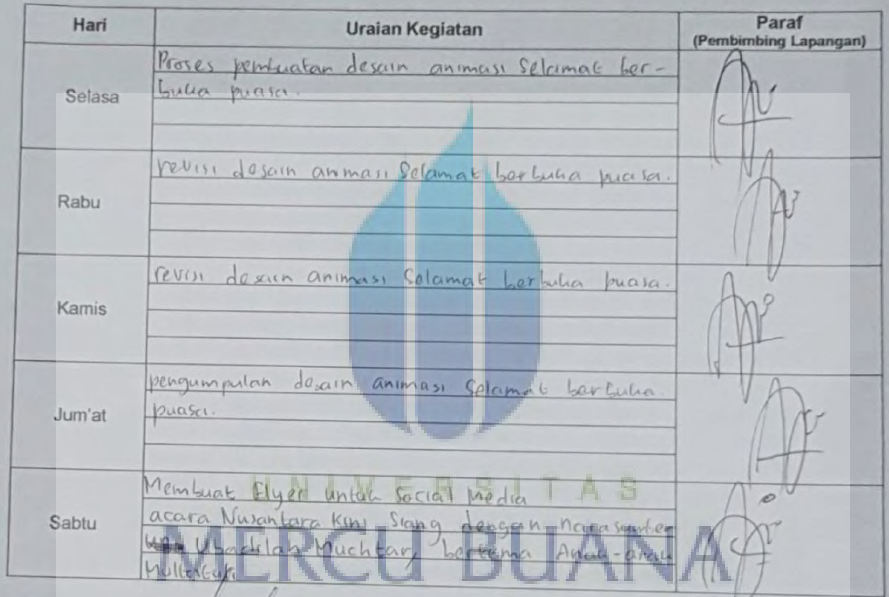 Hari Uraian Kegiatan Paraf
(Pembimbing Lapangan)
Selasa
Proses pembuatan desain animasi Selamat ber-
buka puasa.
Rabu
revisi desain animasi Selamat berbuka puasa.
Kamis
revisi desain animasi Selamat berbuka puasa.
Jum'at
pengumpulan desain animasi Selamat berbuka
puasa.
Sabtu
Membuat Flyer untuk Social Media
acara Nusantara Kini Siang dengan narasumber
Ubadilah Muchtar, bertema
UNIVERSITAS
MERCU BUANA